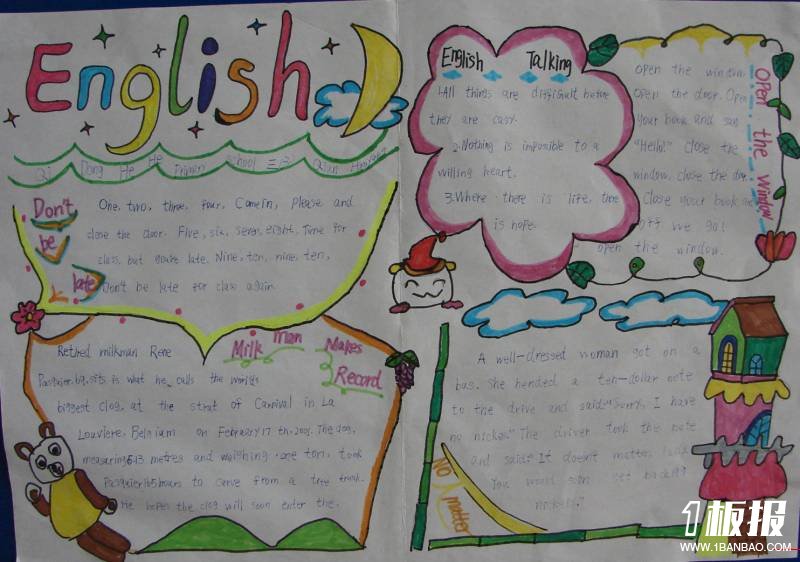 English
Qi Dong He He Primary School 三
Don't
be
late
One, two, three, four, Comein, Please and
close the door. Five, six, seven, eight, Time for
class, but you're late. Nine, ten, nine, ten,
Don't be late for class again
Milk man Makes
Record
Retired milkman Rene
Pasquier, 69, sits is what he calls the worlds
biggest clog, at the strat of Carnival in La
Louviere, Belgium on February 17 th, 2001. The clog,
measuring 5.13 metres and weighing one ton, took
Pasquier 165 hours to carve from a tree trunk.
He hopes the clog will soon enter the
English Talking
1.All things are difficult before
they are easy.
2.Nothing is impossible to a
willing heart.
3.Where there is life, there
is hope.
Open the window
open the window.
open the door. Open
your book and say
"Hello!" close the
window, close the door.
close your book and
off we go!
open the window.
A well-dressed woman got on a
bus. She handed a ten-dollar note
to the drive and said:"Sorry, I have
no nickes." The driver took the note
and said:"It doesn't matter, lady
You would soon get back
nickels."
No matter
1板报
WWW.1BANBAO.COM